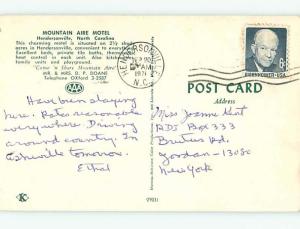 MOUNTAIN AIRE MOTEL
Hendersonville, North Carolina
This charming motel is situated on 2½ shady
acres in Hendersonville, convenient to everything.
Excellent beds, private tile baths, individually
family units and playground.
MR. & MRS. D. P. DOANE
Telephone Oxford 3-2587
AAA
HENDERSONVILLE
AM
1971
N.C.
EISENHOWER·USA
6c
POST CARD
Address
Have been staying
here. Rates reasonable
everywhere. Driving
around country. In
Asheville tomorrow.
Ethel
Miss Joanne Kent
RD1 Box 333
Brutus Rd.
Jordan - 13080
New York
K